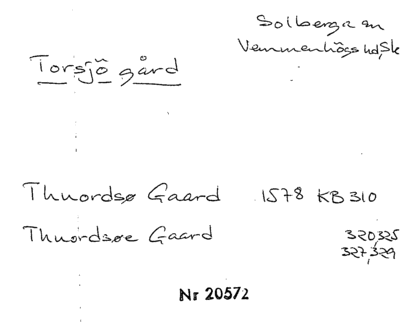 Solberga sn
Vemmenhögs hd, Sk
Torsjö gård
Thuordsø Gaard 1578 KB 310
Thuordsøe Gaard 320,325
327,329
Nr 20572